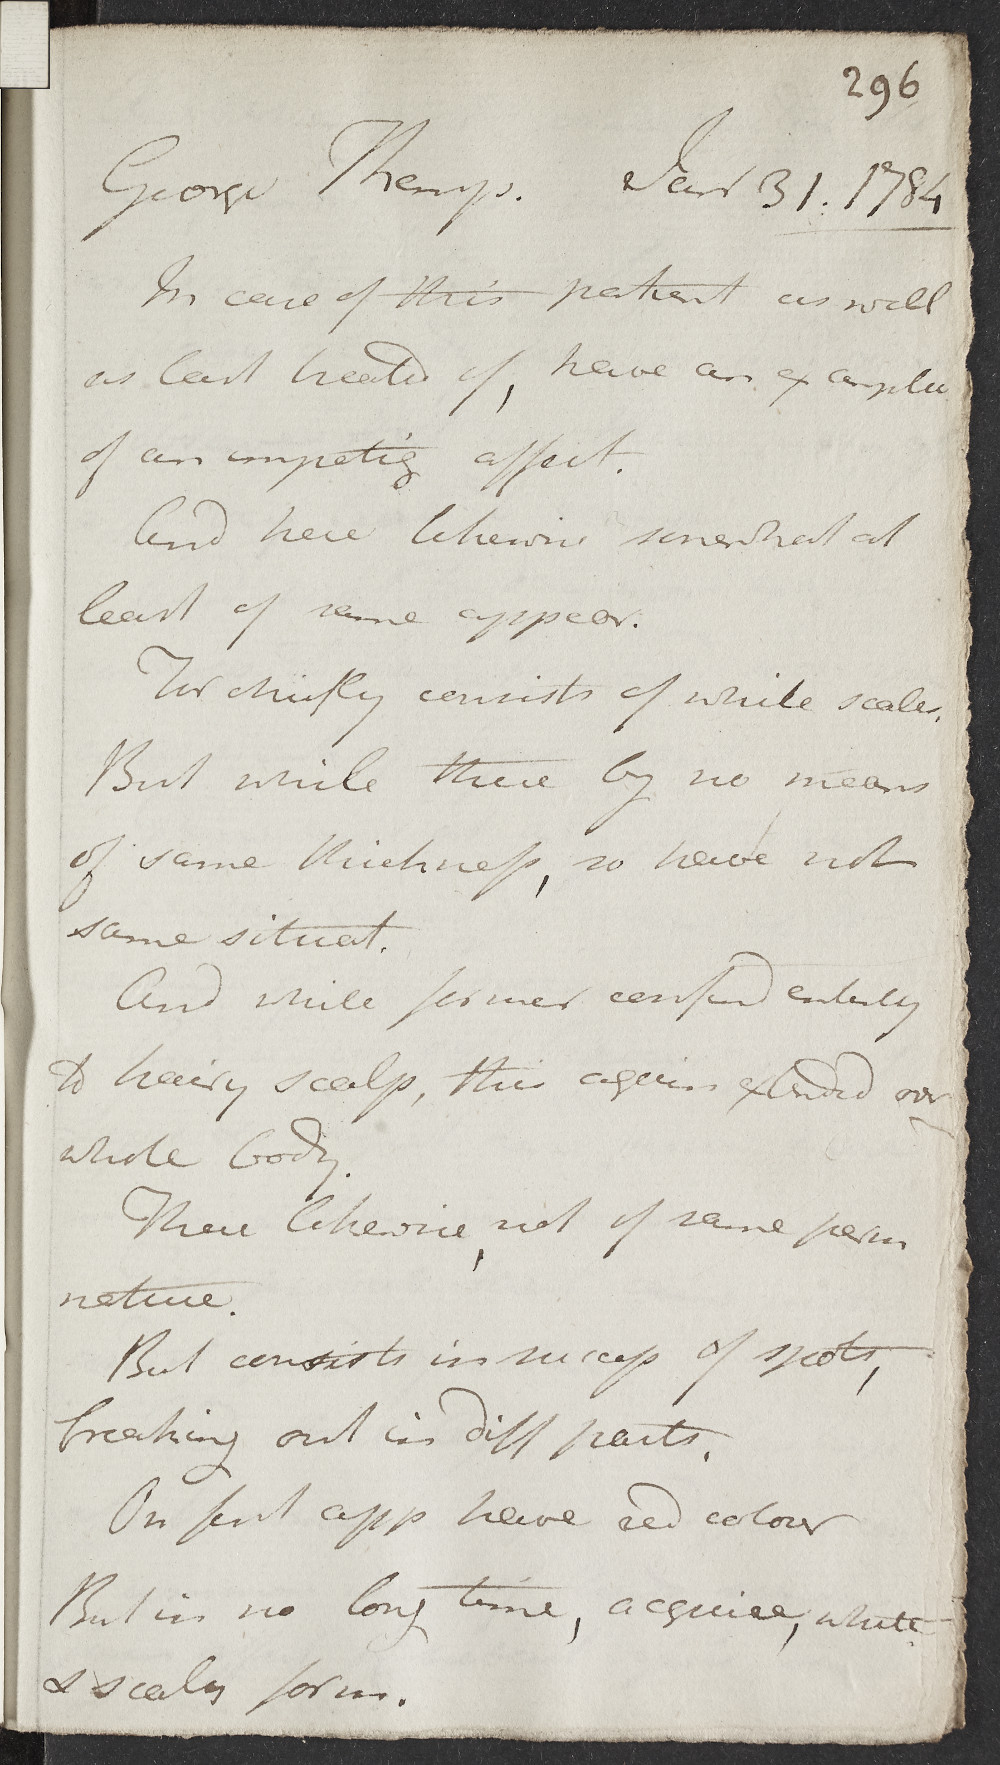 296
George Thomps. Jan 31. 1784
In case of this patient as well
as last treated of, have an example
of an impetig affect.
And here likewise somewhat at
least of same appear.
For chiefly consists of white scales.
But while these by no means
of same thickness, so have not
same situat.
And while former confind entirely
to hairy scalp, this again extended over
whole body.
These likewise, not of same perm
nature.
But consists in success of spots,
breaking out in diff parts.
On first app have red colour
But in no long time, acquire, white
& scaly form.